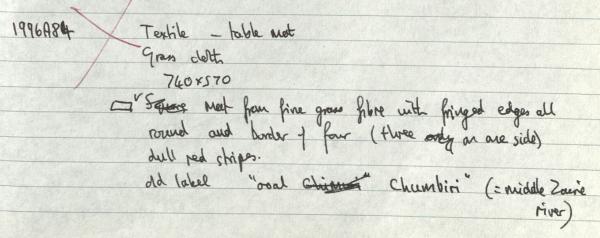 1996A84 Textile - table mat
Grass cloth
740x570
Square mat from fine grass fibre with fringed edges all
round and border of four (three only on one side)
dull red stripes.
old label "oval Chumbiri" (= middle Zaire
river)